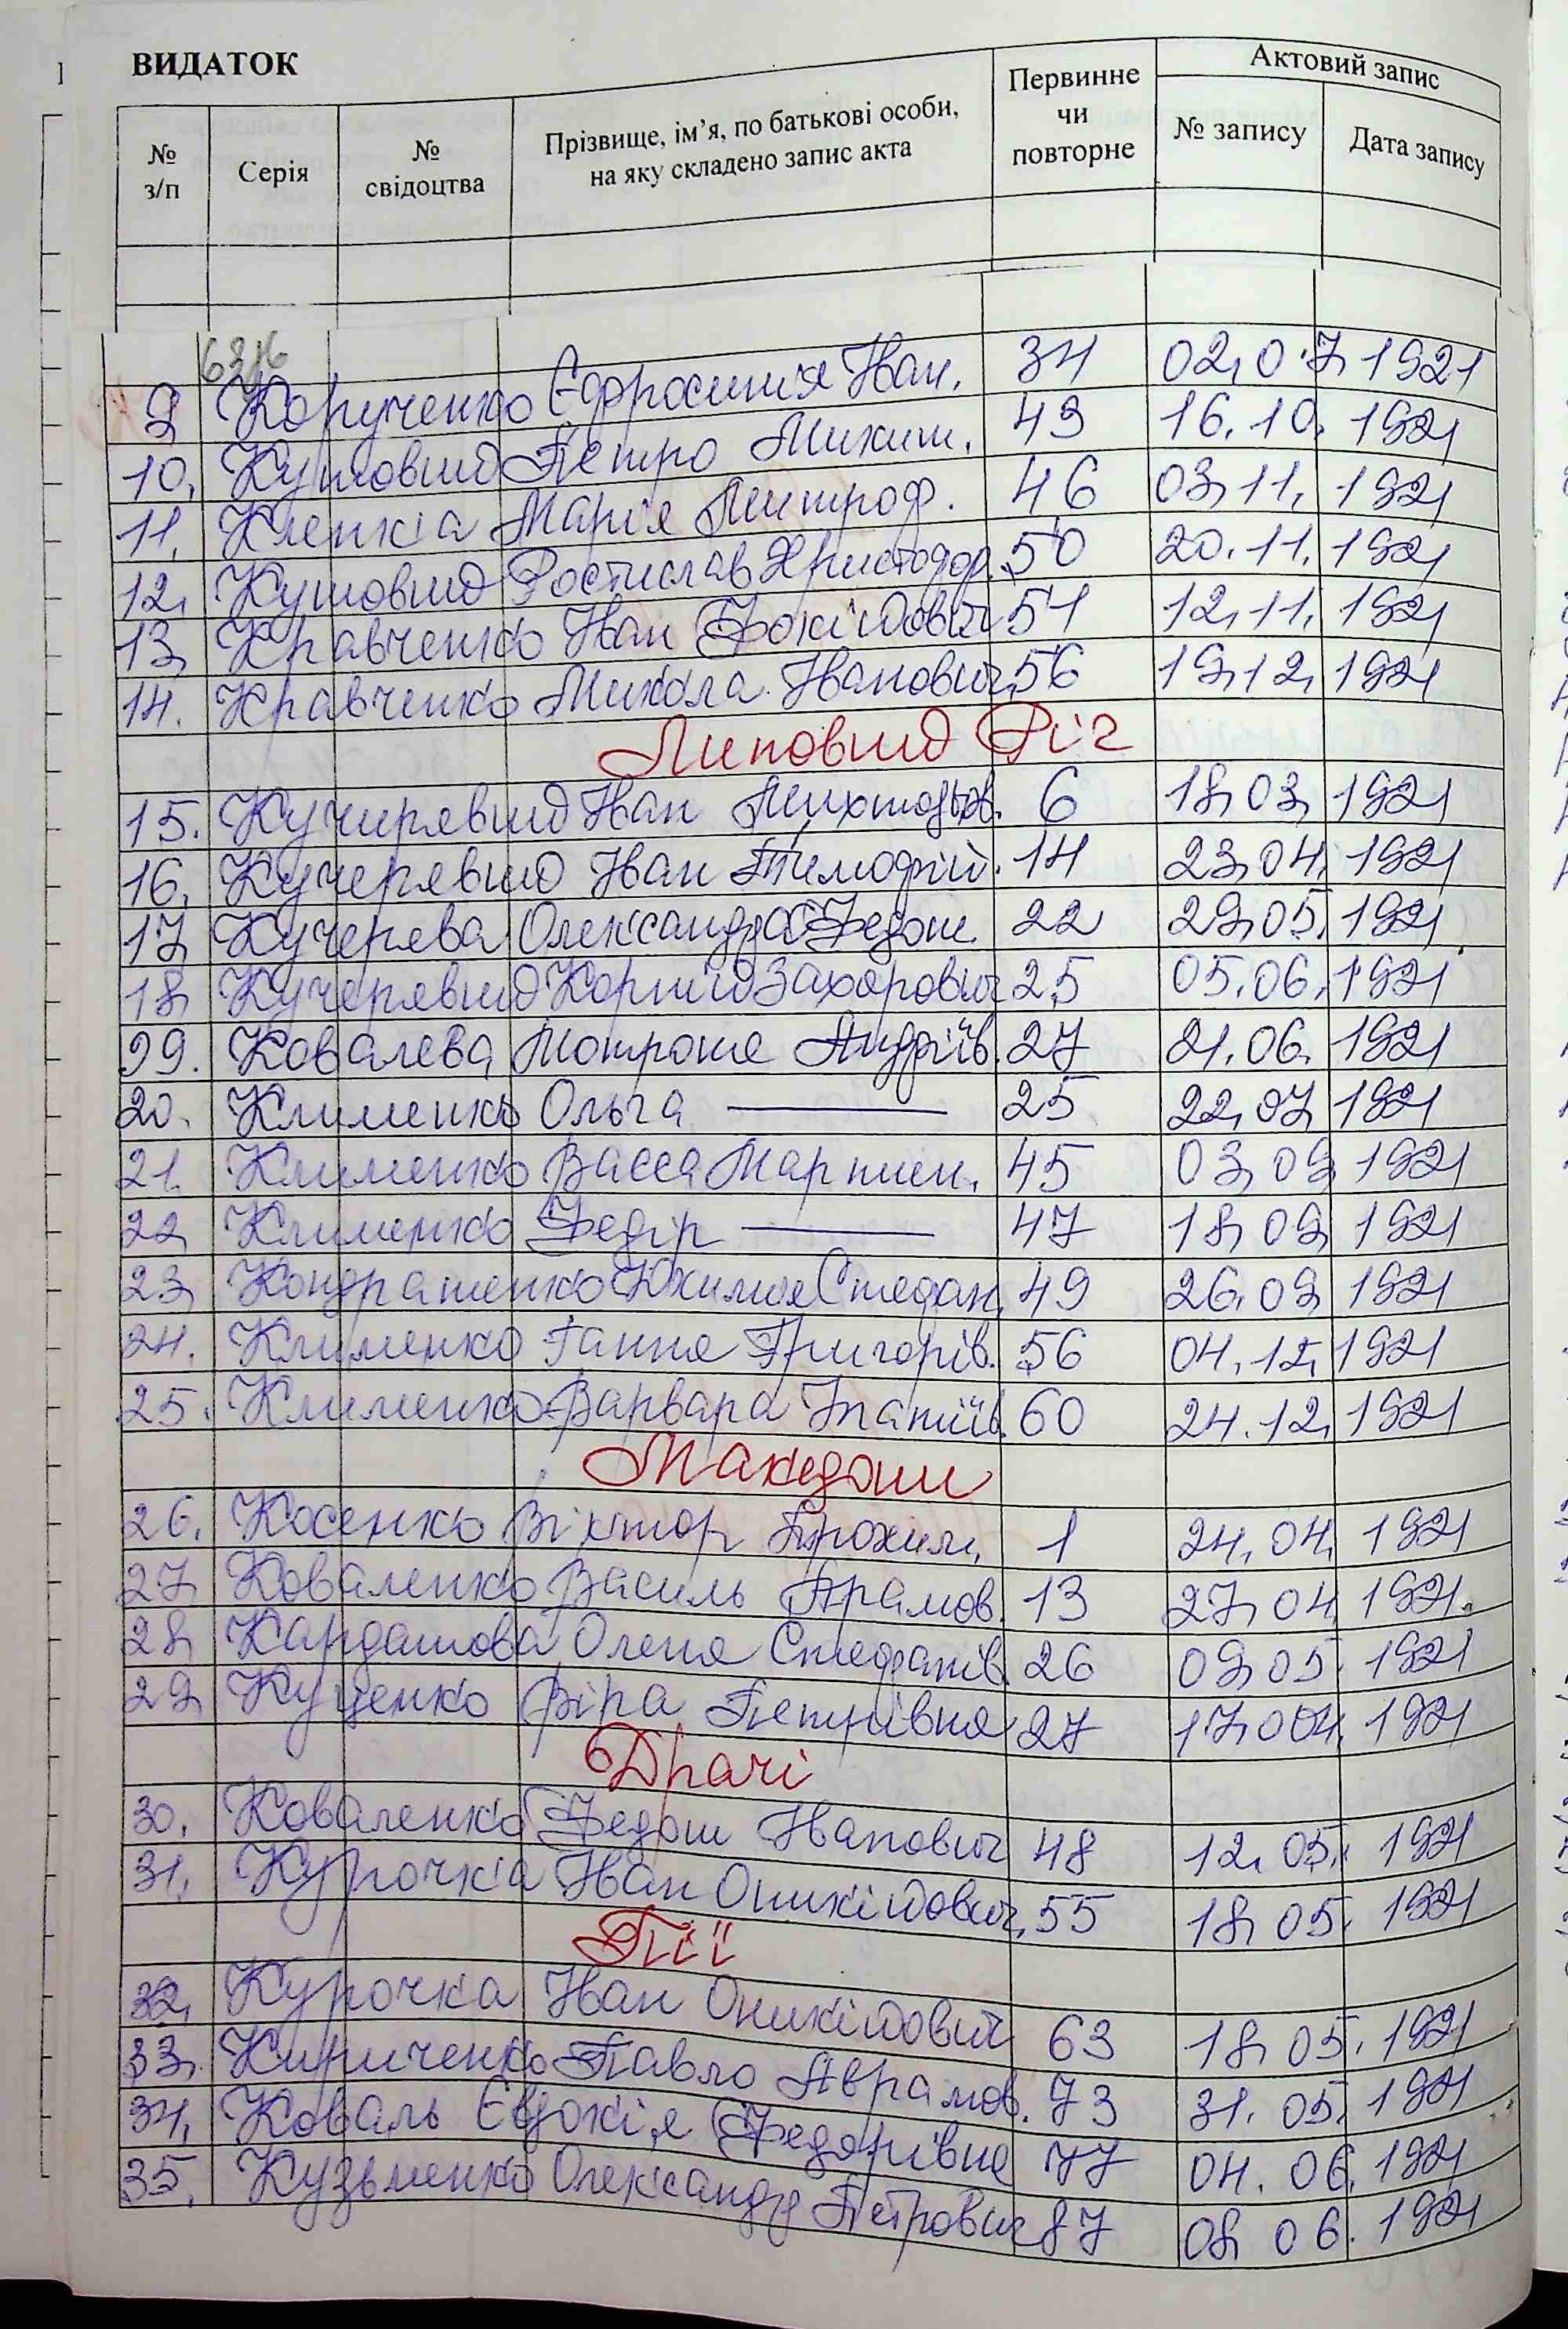 ВИДАТОК
№ з/п Серія № свідоцтва Прізвище, ім’я, по батькові особи, на яку складено запис акта Первинне чи повторне Актовий запис № запису Дата запису
9 Корученко Єфросинія Іван. 34 02.07.1921
10. Кутовий Петро Михит. 43 16.10.1921
11. Клепка Марія Митроф. 46 03.11.1921
12. Кутовий Ростислав Христофор. 50 20.11.1921
13. Кравченко Іван Фокійович 51 12.11.1921
14. Кравченко Микола Іванович 56 19.12.1921
Липовий Ріг
15. Кучирявий Іван 6 18.03.1921
16. Кучерявий Іван Тимофій. 14 23.04.1921
17. Кучерява Олександра Федот. 22 29.05.1921
18. Кучерявий Корній Захарович 25 05.06.1921
99. Ковалева Мотрона Андріїв. 27 21.06.1921
20. Клименко Ольга — 25 22.07.1921
21. Клименко Васса Мартин. 45 03.09.1921
22. Клименко Федір — 47 18.09.1921
23. Кондратенко Юхимія Стефан. 49 26.09.1921
24. Клименко Ганна Григорів. 56 04.12.1921
25. Клименко Варвара Ігнатіїв. 60 24.12.1921
Македони
26. Косенко Віктор Трохим. 1 24.04.1921
27. Коваленко Василь Арамов. 13 27.04.1921.
28. Кардашова Олена Стефанів. 26 09.05.1921
29. Куценко Віра Петрівна 27 17.004.1921
Драчі
30. Коваленко Федот Іванович 48 12.05.1921
31. Курочка Іван Оникійович 55 18.05.1921
Пії
32. Курочка Іван Оникійович 63 18.05.1921
33. Кириченко Павло Аврамов. 73 31.05.1921
34. Коваль Євдокія Федорівна 77 04.06.1921
35. Кузьменко Олександр Петрович 87 08.06.1921